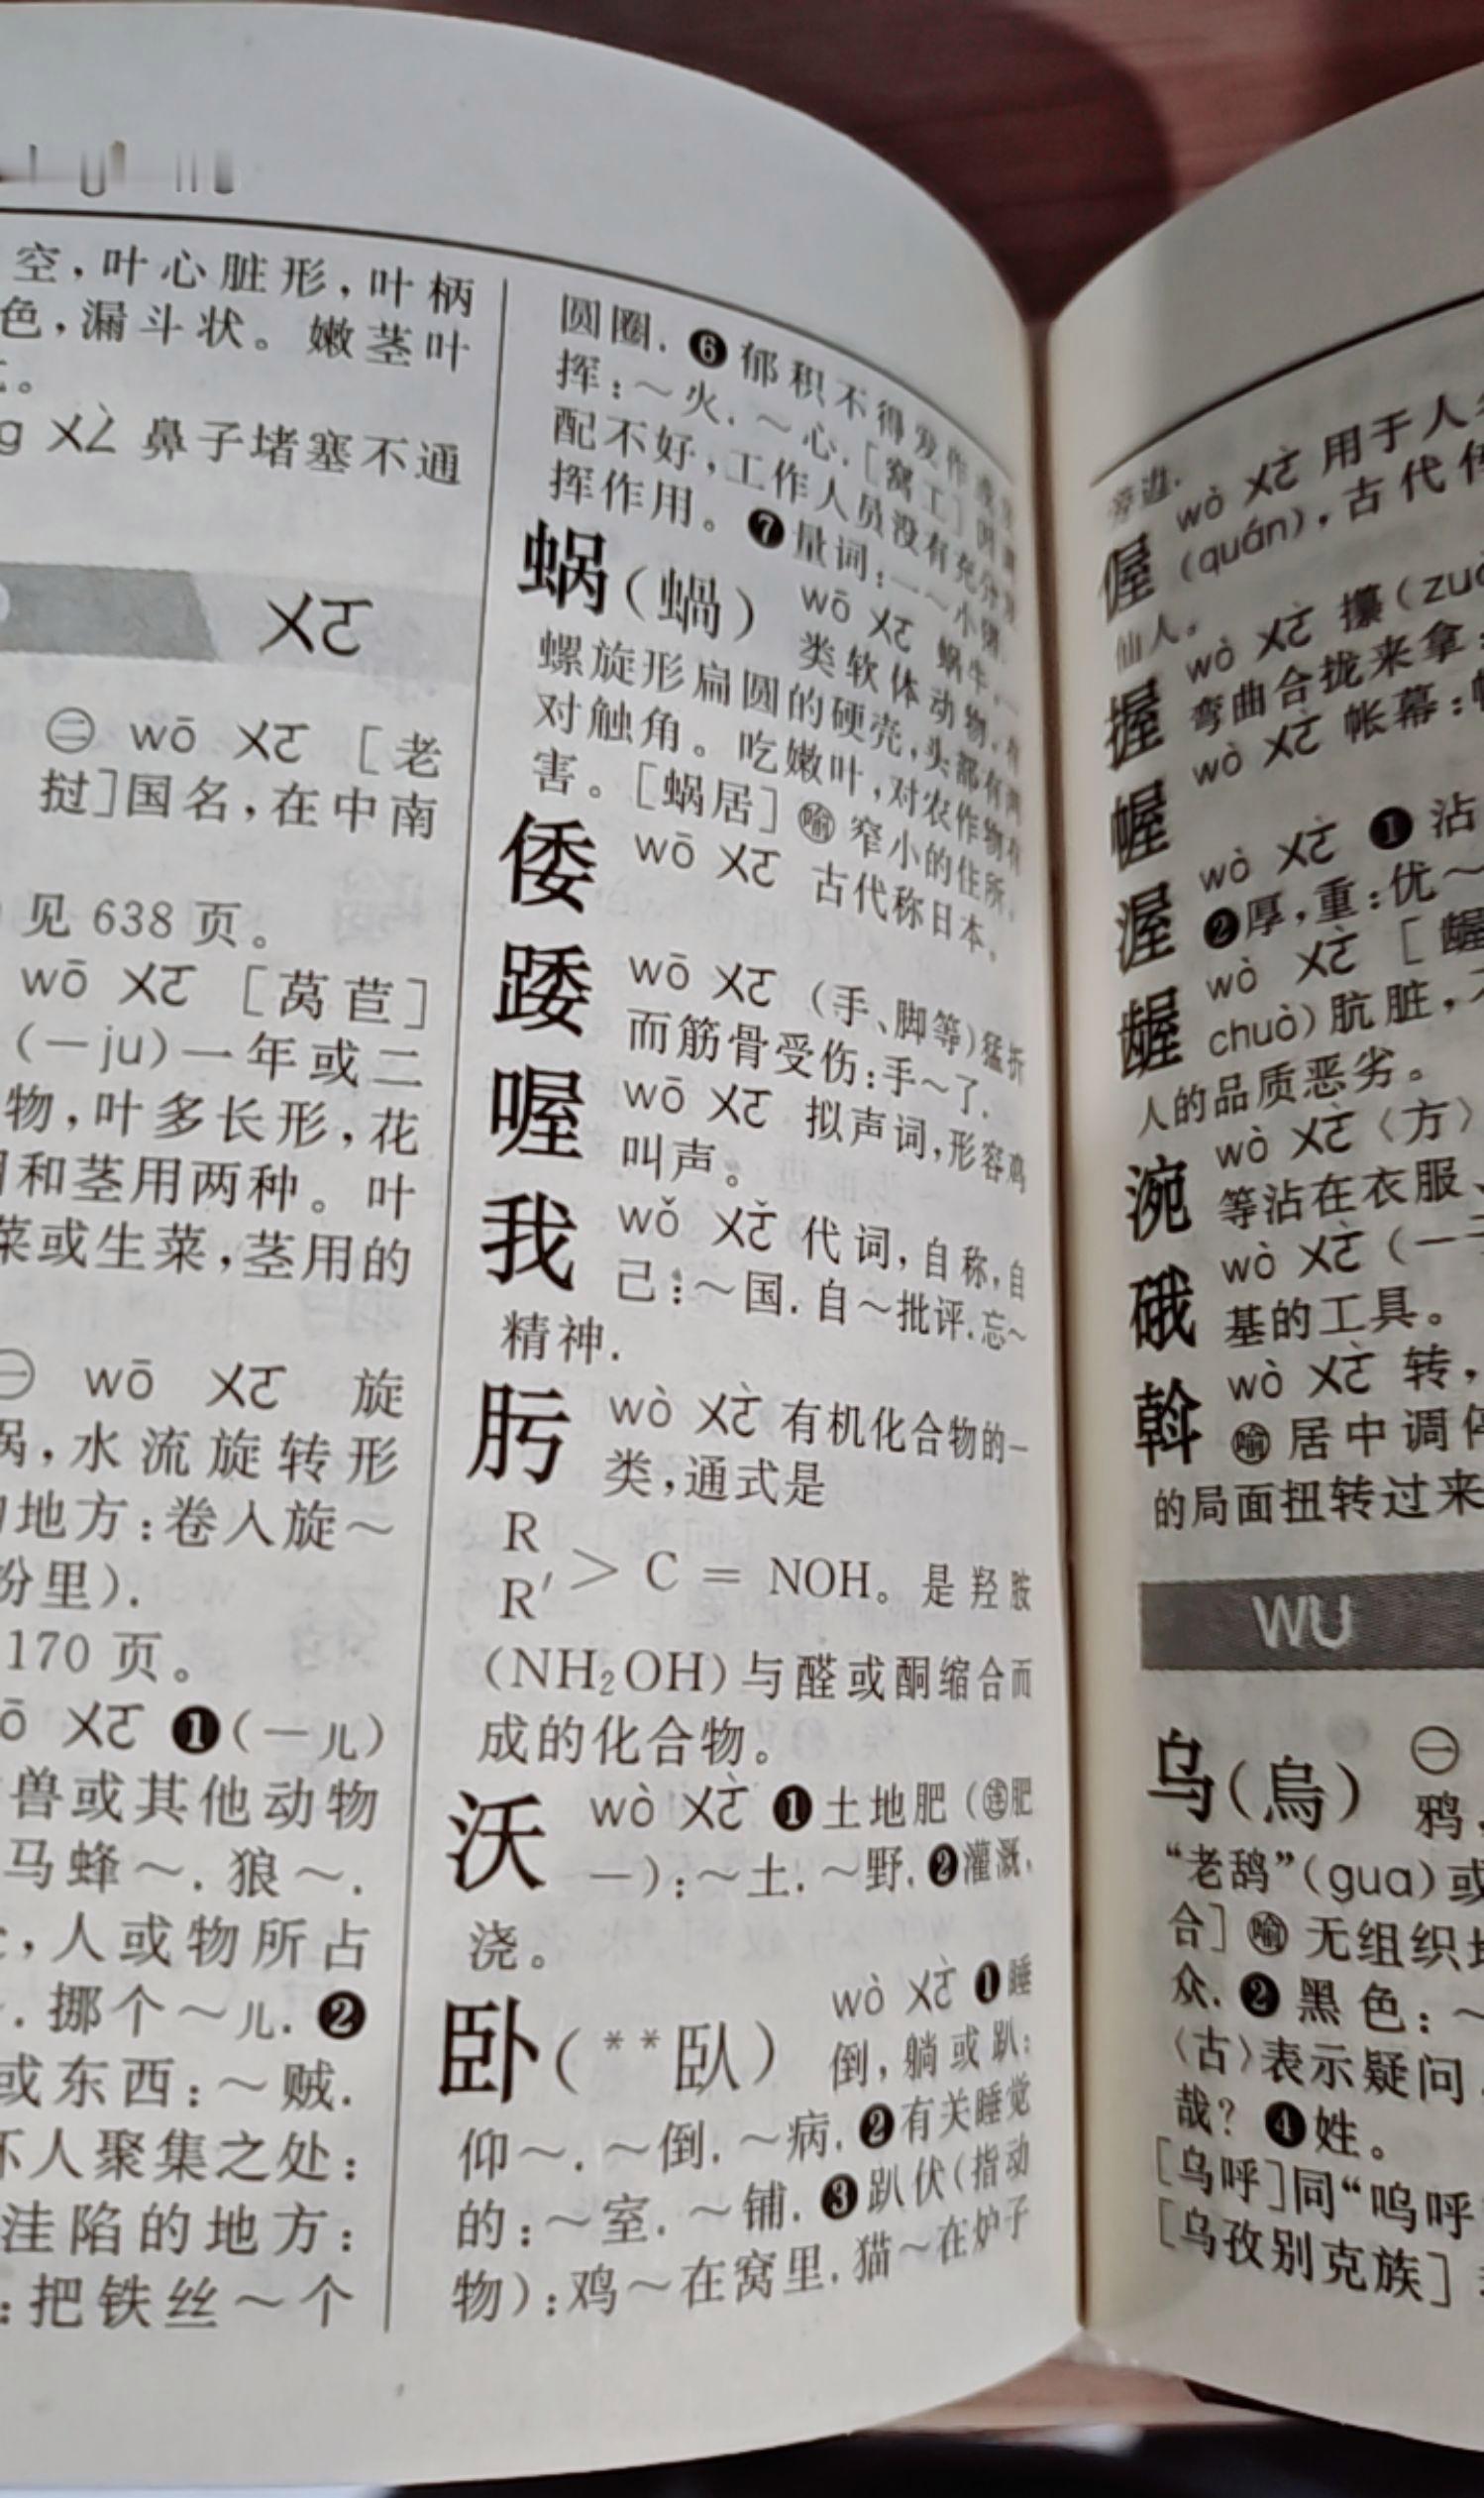 空,叶心脏形,叶柄
色,漏斗状。嫩茎叶
ㄨㄥˋ 鼻子堵塞不通
ㄨㄛ
㊁ wō ㄨㄛ [老
挝]国名,在中南
见 638 页。
wō ㄨㄛ [莴苣]
(一ju)一年或二
物,叶多长形,花
和茎用两种。叶
菜或生菜,茎用的
㊀ wō ㄨㄛ 旋
涡,水流旋转形
地方:卷入旋~
170 页。
ㄨㄛ ❶(一儿)
兽或其他动物
马蜂~. 狼~.
,人或物所占
. 挪个~儿. ❷
或东西:~贼.
坏人聚集之处:
洼陷的地方:
:把铁丝~个
圆圈. ❻郁积不得发作或发
挥:~火. ~心. [窝工]因调
配不好,工作人员没有充分发
挥作用。❼量词:一~小猪.
蜗(蝸) wō ㄨㄛ 蜗牛,一
类软体动物,有
螺旋形扁圆的硬壳,头部有两
对触角。吃嫩叶,对农作物有
害。[蜗居]㊙喻 窄小的住所。
倭 wō ㄨㄛ 古代称日本。
踒 wō ㄨㄛ (手、脚等)猛折
而筋骨受伤:手~了.
喔 wō ㄨㄛ 拟声词,形容鸡
叫声。
我 wǒ ㄨㄛˇ 代词,自称,自
己:~国. 自~批评.忘~
精神.
肟 wò ㄨㄛˋ 有机化合物的一
类,通式是
R
R′ > C = NOH。是羟胺
(NH₂OH)与醛或酮缩合而
成的化合物。
沃 wò ㄨㄛˋ ❶土地肥(㊣连肥
一):~土. ~野. ❷灌溉,
浇。
卧(**臥) wò ㄨㄛˋ ❶睡
倒,躺或趴:
仰~. ~倒. ~病. ❷有关睡觉
的:~室. ~铺. ❸趴伏(指动
物):鸡~在窝里. 猫~在炉子
旁边.
偓 wò ㄨㄛˋ 用于人
(quán),古代
仙人。
握 wò ㄨㄛˋ 攥
弯曲合拢来拿
幄 wò ㄨㄛˋ 帐幕:
渥 wò ㄨㄛˋ ❶沾
❷厚,重:优~
龌 wò ㄨㄛˋ [龌
chuò)肮脏,
人的品质恶劣。
涴 wò ㄨㄛˋ〈方〉
等沾在衣服
硪 wò ㄨㄛˋ (一
基的工具。
斡 wò ㄨㄛˋ 转,
喻 居中调停
的局面扭转过来
WU
乌(烏) ㊀
鸦,
“老鸹”(gua)或
合]喻 无组织地
众. ❷黑色:
〈古〉表示疑问
哉? ❹姓。
[乌呼]同“呜呼
[乌孜别克族]